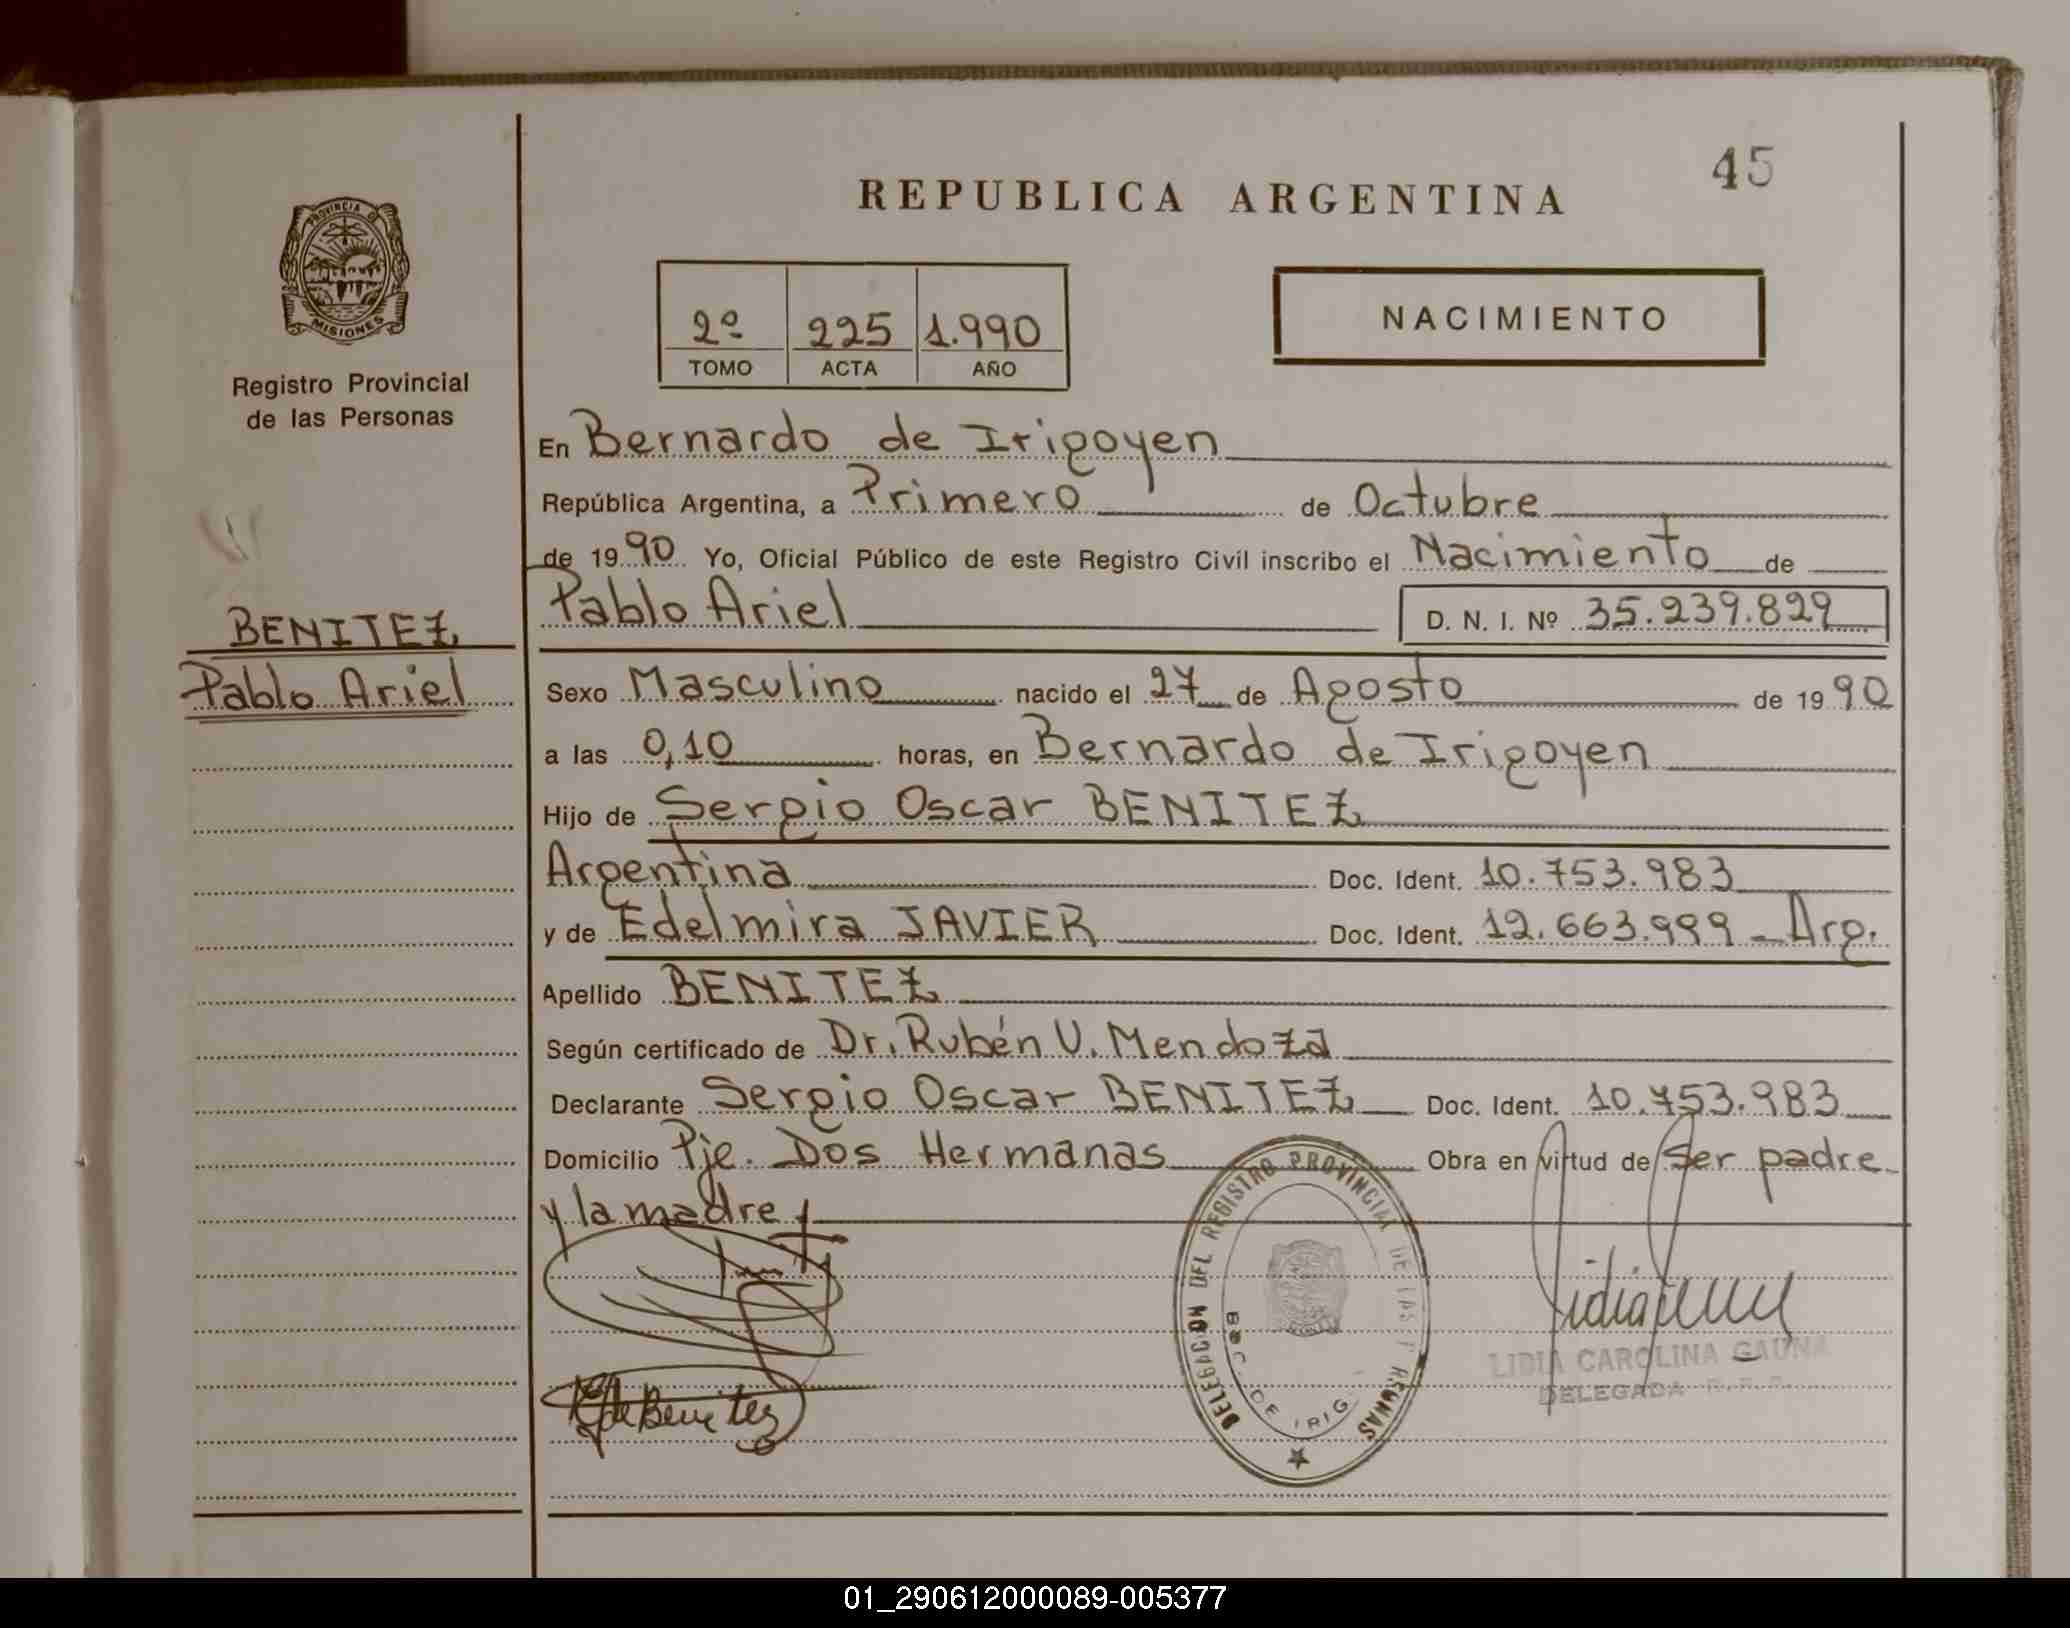 45
REPUBLICA ARGENTINA
PROVINCIA D
MISIONES
Registro Provincial
de las Personas
2º 225 1.990
TOMO ACTA AÑO
NACIMIENTO
En Bernardo de Irigoyen
República Argentina, a Primero de Octubre
de 1990 Yo, Oficial Público de este Registro Civil inscribo el Nacimiento de
Pablo Ariel D. N. I. Nº 35.239.829
BENITEZ
Pablo Ariel
Sexo Masculino nacido el 27 de Agosto de 1990
a las 0,10 horas, en Bernardo de Irigoyen
Hijo de Sergio Oscar BENITEZ
Argentina Doc. Ident. 10.753.983
y de Edelmira JAVIER Doc. Ident. 12.663.999 - Arg.
Apellido BENITEZ
Según certificado de Dr. Rubén V. Mendoza
Declarante Sergio Oscar BENITEZ Doc. Ident. 10.753.983
Domicilio Pje. Dos Hermanas Obra en virtud de Ser padre
y la madre
DELEGACION DEL REGISTRO PROVINCIAL DE LAS PERSONAS
BDO. DE IRIG.
LIDIA CAROLINA GAUNA
DELEGADA R. P. P.
de Benitez
01_290612000089-005377